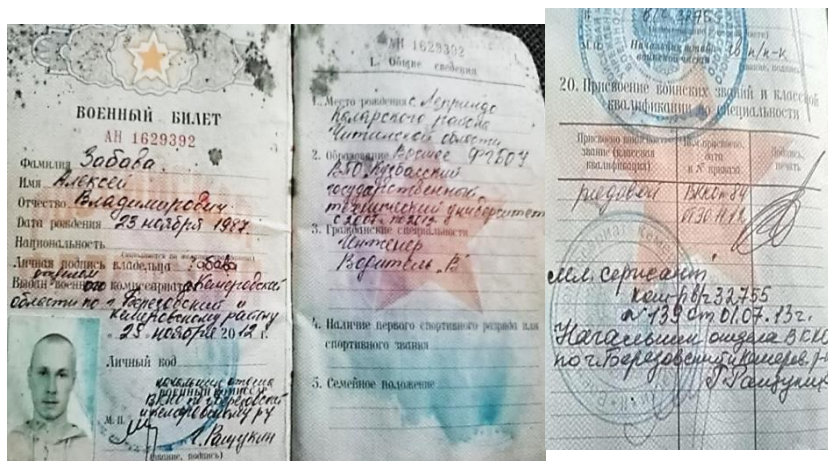 ВОЕННЫЙ БИЛЕТ
АН 1629392
Фамилия Забава
Имя Алексей
Отчество Владимирович
Дата рождения 23 ноября 1987
Национальность
Личная подпись владельца Забава
Выдан военного комиссариата Кемеровской
области по г. Березовский и
Кемеровскому району
25 ноября 2012 г.
Личный код
начальник отдела
военный комиссар
ВККО по г. Березовский
и Кемеровскому р-у
М. П.
Г. Ращукин
(звание, подпись)
АН 1629392
1. Общие сведения
1. Место рождения с.
Каларского района
Читинской области
2. Образование Высшее ФГБОУ
ВПО Кузбасский
государственный
технический университет
3. Гражданские специальности
Инженер
Водитель "В"
4. Наличие первого спортивного разряда или
спортивного звания
5. Семейное положение
в/ч 32755
Начальник штаба
воинской части
п/п-к
20. Присвоение воинских званий и классной
квалификации по специальности
Присвоено воинское
звание (классная
квалификация)
Кем присвоено,
дата
и № приказа
Подпись,
печать
рядовой
ВККО
мл. сержант
ком. в/ч 32755
№ 139 от 01.07.13г.
Начальник отдела ВККО
по г. Березовский и Кемеров. р-
Г Ращукин